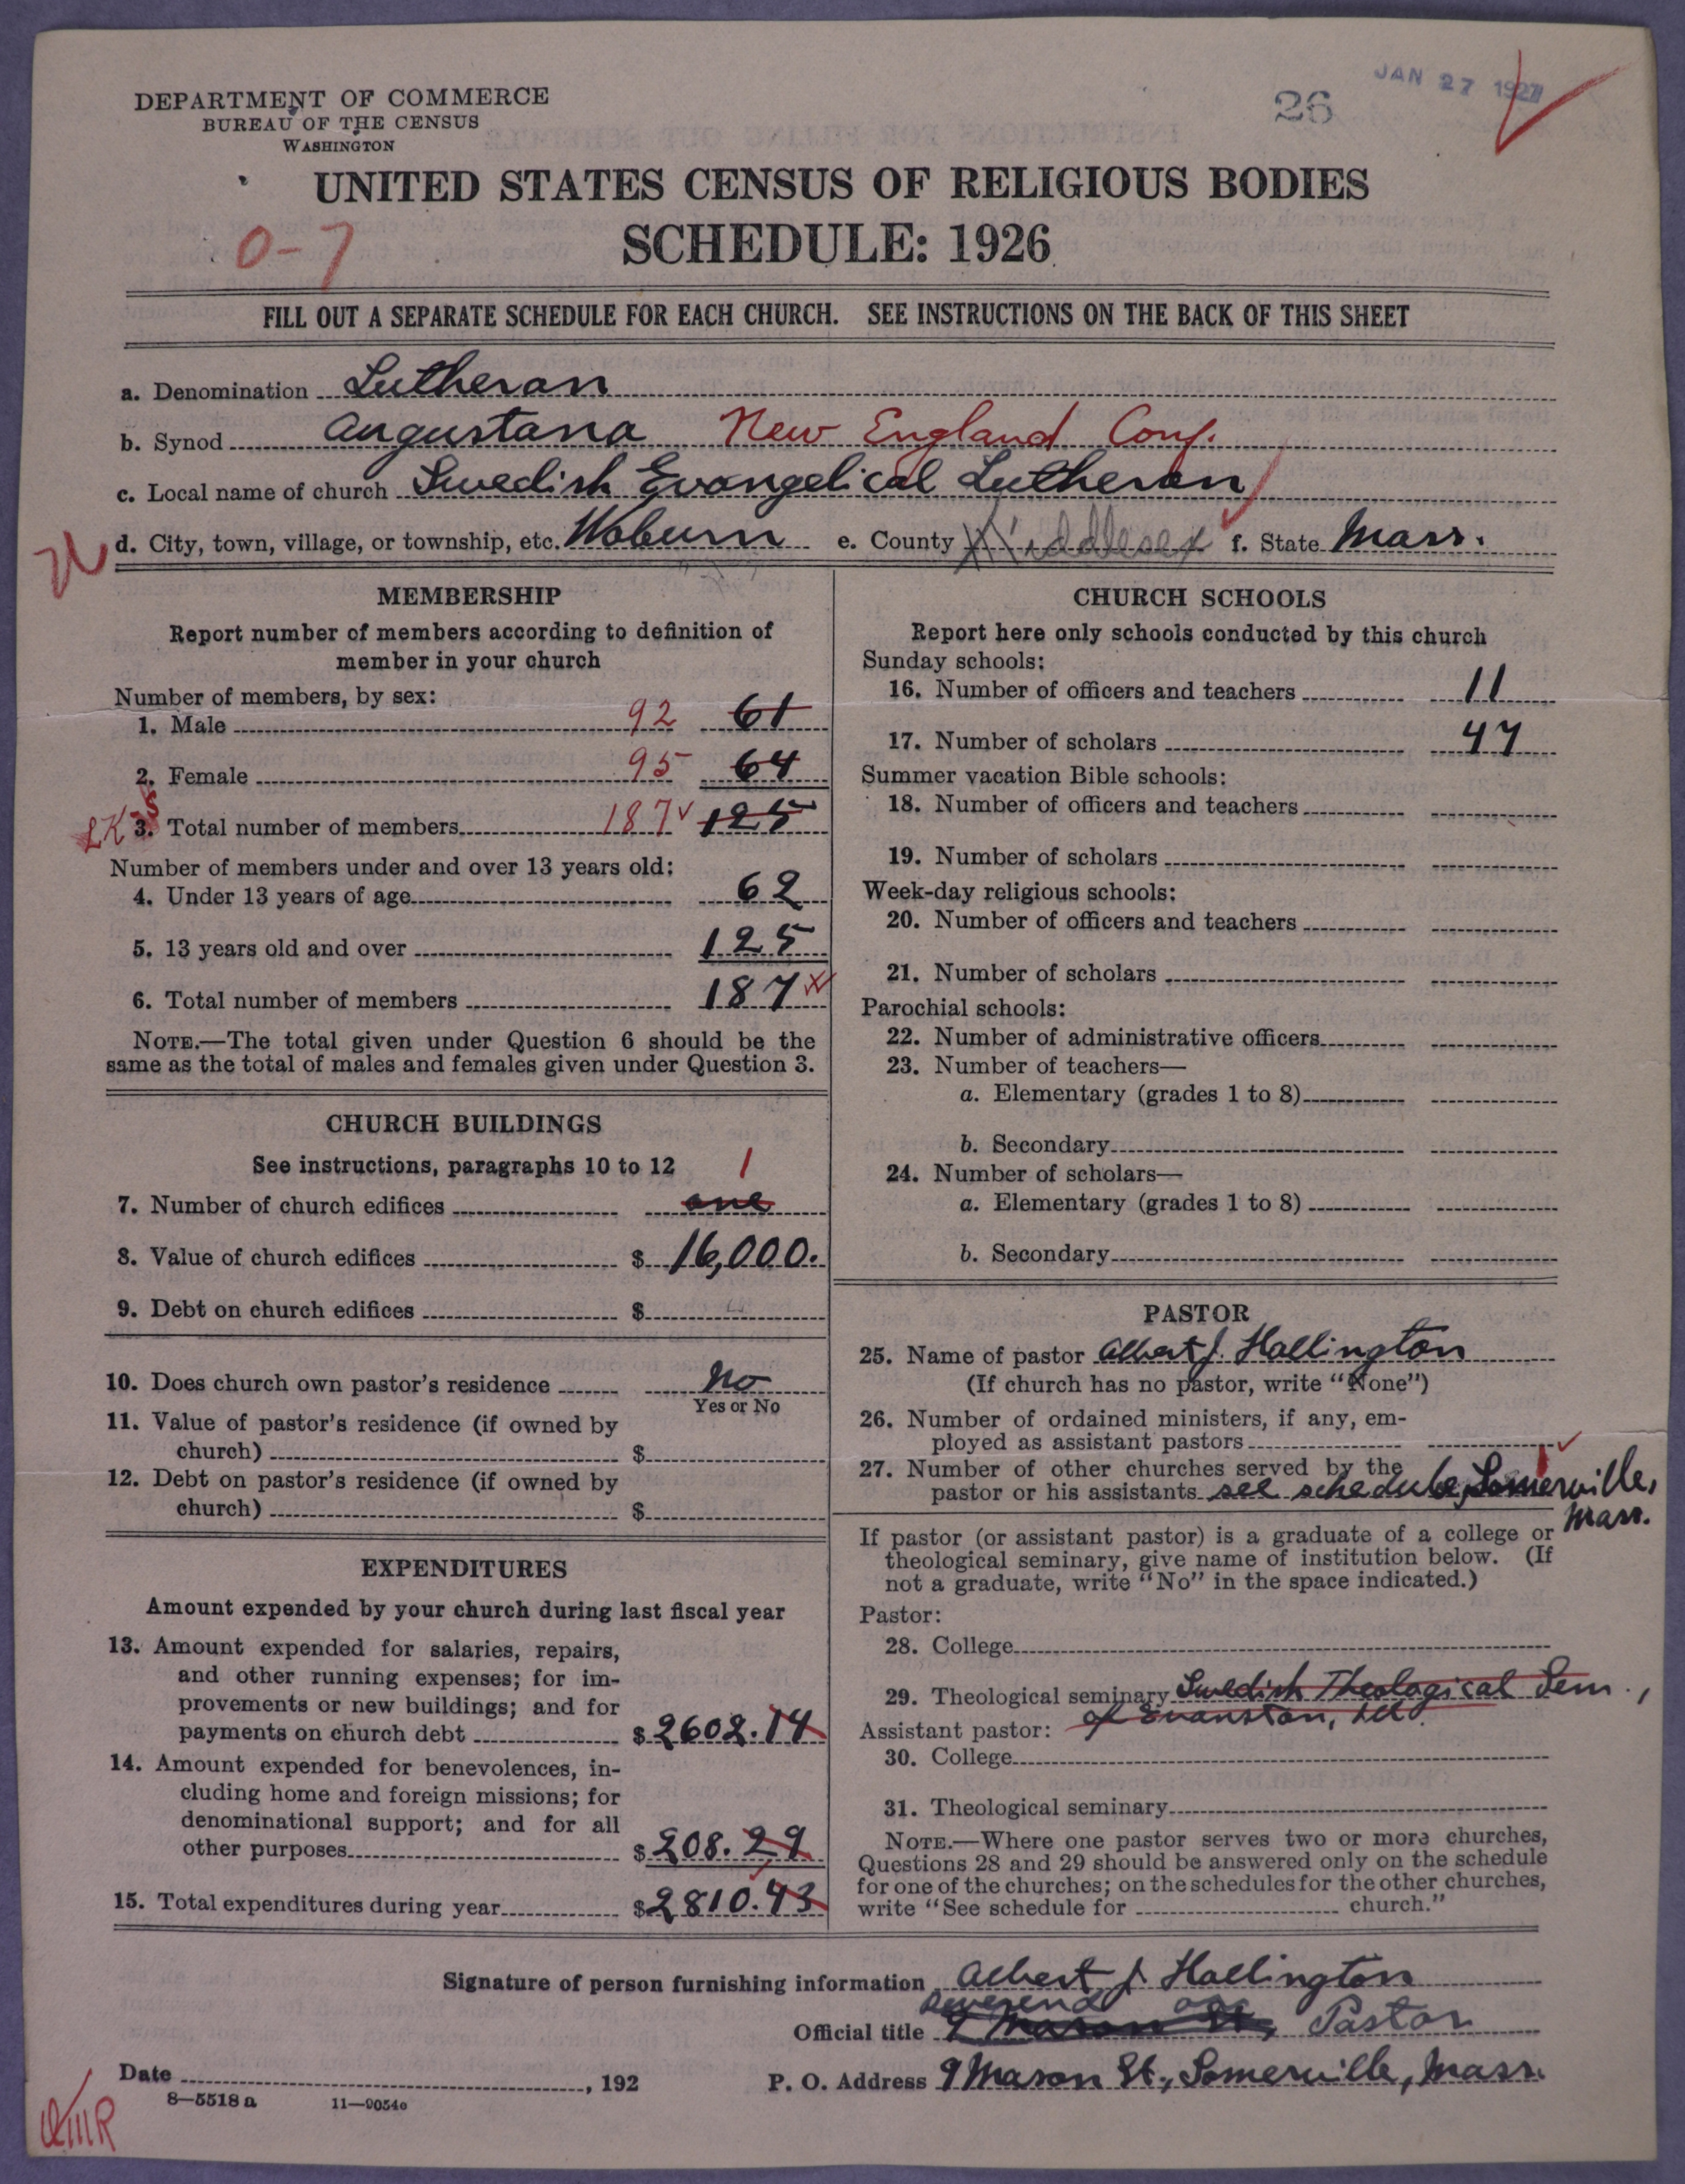 JAN 27 1927
26
DEPARTMENT OF COMMERCE
BUREAU OF THE CENSUS
WASHINGTON
UNITED STATES CENSUS OF RELIGIOUS BODIES
0-7
SCHEDULE: 1926
FILL OUT A SEPARATE SCHEDULE FOR EACH CHURCH. SEE INSTRUCTIONS ON THE BACK OF THIS SHEET
a. Denomination Lutheran
b. Synod Augustana New England Conf.
c. Local name of church Swedish Evangelical Lutheran
d. City, town, village, or township, etc. Woburn e. County Middlesex f. State Mass.
MEMBERSHIP
Report number of members according to definition of
member in your church
Number of members, by sex:
1. Male 92 61
2. Female 95 64
3. Total number of members 187 125
Number of members under and over 13 years old:
4. Under 13 years of age 62
5. 13 years old and over 125
6. Total number of members 187
NOTE.—The total given under Question 6 should be the
same as the total of males and females given under Question 3.
CHURCH BUILDINGS
See instructions, paragraphs 10 to 12 1
7. Number of church edifices one
8. Value of church edifices $ 16,000.
9. Debt on church edifices $
10. Does church own pastor's residence No
Yes or No
11. Value of pastor's residence (if owned by
church) $
12. Debt on pastor's residence (if owned by
church) $
EXPENDITURES
Amount expended by your church during last fiscal year
13. Amount expended for salaries, repairs,
and other running expenses; for im-
provements or new buildings; and for
payments on church debt $ 2602.14
14. Amount expended for benevolences, in-
cluding home and foreign missions; for
denominational support; and for all
other purposes $ 208.29
15. Total expenditures during year $ 2810.43
CHURCH SCHOOLS
Report here only schools conducted by this church
Sunday schools:
16. Number of officers and teachers 11
17. Number of scholars 47
Summer vacation Bible schools:
18. Number of officers and teachers
19. Number of scholars
Week-day religious schools:
20. Number of officers and teachers
21. Number of scholars
Parochial schools:
22. Number of administrative officers
23. Number of teachers—
a. Elementary (grades 1 to 8)
b. Secondary
24. Number of scholars—
a. Elementary (grades 1 to 8)
b. Secondary
PASTOR
25. Name of pastor Albert J. Hallington
(If church has no pastor, write "None")
26. Number of ordained ministers, if any, em-
ployed as assistant pastors
27. Number of other churches served by the
pastor or his assistants see schedule, Somerville,
Mass.
If pastor (or assistant pastor) is a graduate of a college or
theological seminary, give name of institution below. (If
not a graduate, write "No" in the space indicated.)
Pastor:
28. College
29. Theological seminary Swedish Theological Sem.,
of Evanston, Ill.
Assistant pastor:
30. College
31. Theological seminary
NOTE.—Where one pastor serves two or more churches,
Questions 28 and 29 should be answered only on the schedule
for one of the churches; on the schedules for the other churches,
write "See schedule for church."
Signature of person furnishing information Albert J. Hallington
Reverend
Official title 9 Mason St., Pastor
Date , 192
P. O. Address 9 Mason St., Somerville, Mass.
8—5518 a 11—9054